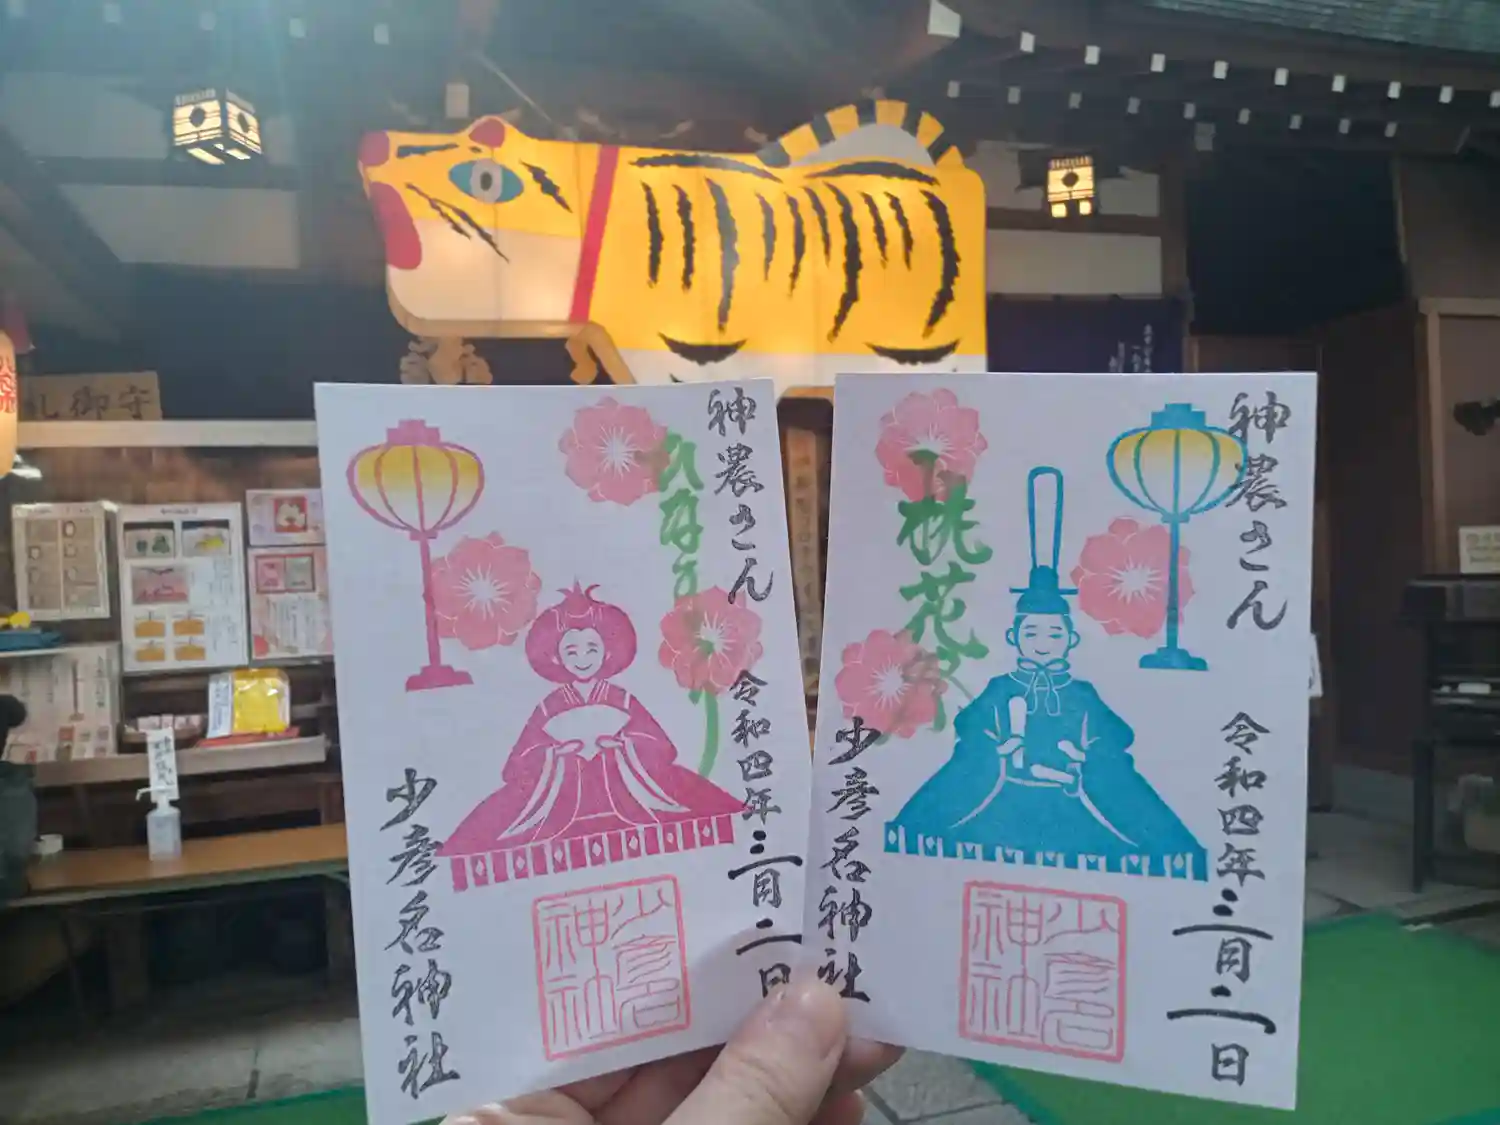 札御守
神農さん
ひなまつり
令和四年三月二日
少彦名神社
少彦名神社
神農さん
桃花祭
令和四年三月二日
少彦名神社
少彦名神社